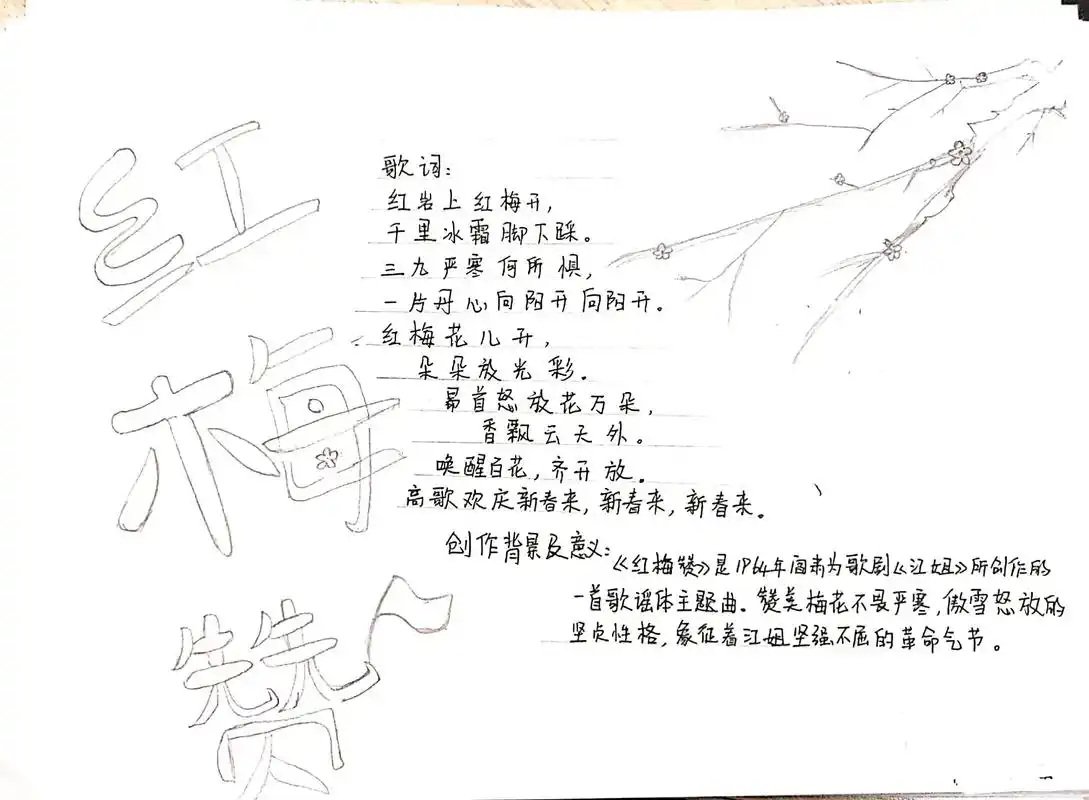 红梅赞
歌词:
红岩上红梅开,
千里冰霜脚下踩。
三九严寒何所惧,
一片丹心向阳开向阳开。
红梅花儿开,
朵朵放光彩.
昂首怒放花万朵,
香飘云天外。
唤醒百花,齐开放。
高歌欢庆新春来,新春来,新春来。
创作背景及意义:
《红梅赞》是1964年阎肃为歌剧《江姐》所创作的
一首歌谣体主题曲。赞美梅花不畏严寒,傲雪怒放的
坚贞性格,象征着江姐坚强不屈的革命气节。